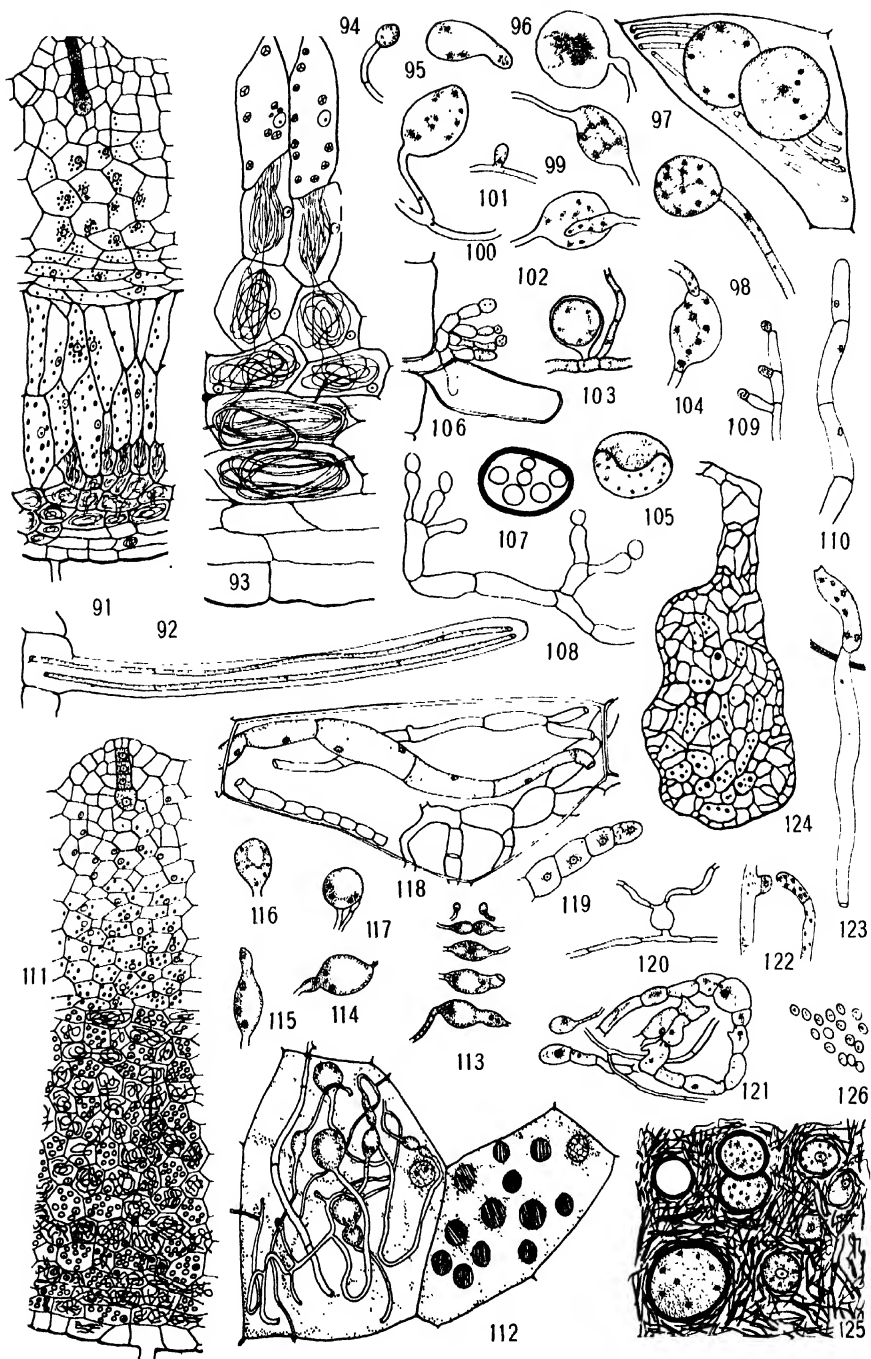 94
95
96
97
99
101
100
102
98
103
104
109
106
107
105
110
93
91
92
108
124
118
119
116
117
123
111
120
122
115
114
113
121
126
112
125